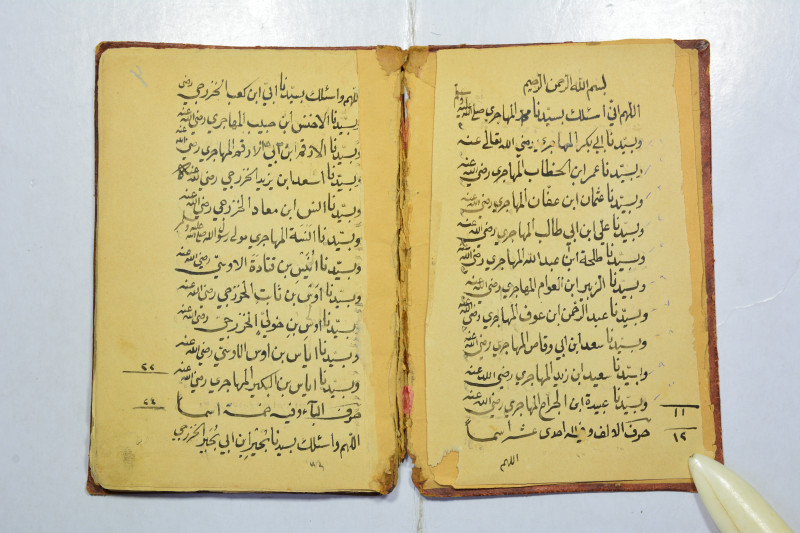 بسم الله الرحمن الرحيم
اللهم اني اسئلك بسيدنا محمد المهاجري صلى الله عليه وسلم
وبسيدنا ابي بكر المهاجري رضي الله تعالى عنه
وبسيدنا عمر ابن الخطاب المهاجري رضي الله عنه
وبسيدنا عثمان ابن عفان المهاجري رضي الله عنه
وبسيدنا علي ابن ابي طالب المهاجري رضي الله عنه
وبسيدنا طلحة ابن عبد الله المهاجري رضي الله عنه
وبسيدنا الزبير ابن العوام المهاجري رضي الله عنه
وبسيدنا عبد الرحمن ابن عوف المهاجري رضي الله عنه
وبسيدنا سعد ابن ابي وقاص المهاجري رضي الله عنه
وبسيدنا سعيد ابن زيد المهاجري رضي الله عنه
وبسيدنا عبيدة ابن الجراح المهاجري رضي الله عنه
١١
حرف الالف وفيه احدى عشر اسماً
١٢
اللهم
اللهم واسئلك بسيدنا ابي ابن كعب الخزرجي رضي
وبسيدنا الاخنس ابن حبيب المهاجري رضي الله عنه
وبسيدنا الارقم ابن ابي الارقم المهاجري رضي الله عنه
وبسيدنا اسعد ابن يزيد الخزرجي رضي الله عنه
وبسيدنا انس ابن معاد الخزرجي رضي الله عنه
وبسيدنا انسة المهاجري مولى رسول الله صلى الله عليه وسلم
وبسيدنا انيس بن قتادة الاوسي رضي الله عنه
وبسيدنا اوس بن ثابت الخزرجي رضي الله عنه
وبسيدنا اوس بن خولي الخزرجي رضي الله عنه
وبسيدنا اياس بن اوس الاوسي رضي الله عنه
٢٢
وبسيدنا اياس بن البكير المهاجري رضي الله عنه
حرف الباء وفيه خمسة اسماً
٢٤
اللهم واسئلك بسيدنا بجير ابن ابي بجير الخزرجي